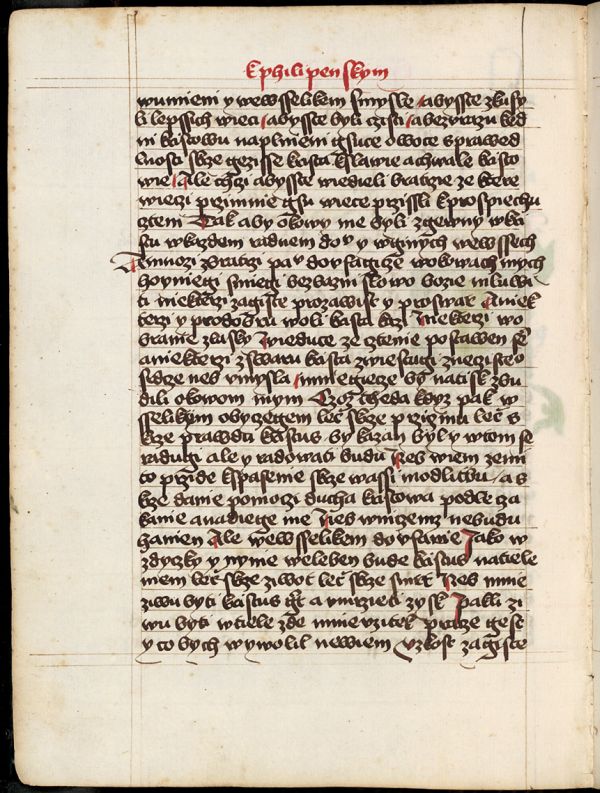 k philipenskym
wumieni y wewsselikem smysle / abysste zkusy
li lepssich wieci / abysste byli czisti / a bez vrazu ke d
ni kristowu naplnieni gsuce owoce sprawed
lnosti skrze gezisse krista k slawie a chwale kristo
wie / Ale chczi abysste wiedieli bratrzie ze ktere
wieczi przi mnie gsu wiece przissli k prospiechu
cztenı Tak aby okowy me byli zgewny w kri
stu w kazdem radnem do v y w ginych wewssech
A mnozi z bratrzi pa v dov fagicze w okowach mych
hoyniegi smiegi bez bazni slowo bozie mluwi
ti niekterzi zagiste pro zawist y pro swar A niek
terzi y pro dobru woli krista kazi Niekterzi wo
branie z lasky wieduce ze cztenie postawen sem
a niekterzi z swaru krista zwiestugi z neczisteo
srdce neb vmysla / mniegicze by natisk zbu
dili okowom mym Czoz theda kdyz pak w
sselikym obyczegem lec skrze przicinu lec s
krze prawdu kristus by kazan byl y w tom se
radugi ale y radowati budu Neb wiem ze mi
to przide k spasenie skrze wassi modlitbu / a s
krze danie pomoczi ducha kristowa podle cza
kanie a nadiege me Neb w niczemz nebudu
hanien Ale wewsselikem dov fanie Jako w
zdyczky y nynie weleben bude kristus na tiele
mem lec skrze ziwot lec skrze smrt Neb mnie
ziwu byti kristus gt a vmrzieti zysk Pakli zi
wu byti w tiele zde mnie vzitek prace gest
y co bych wywolil newiem vzkost zagiste